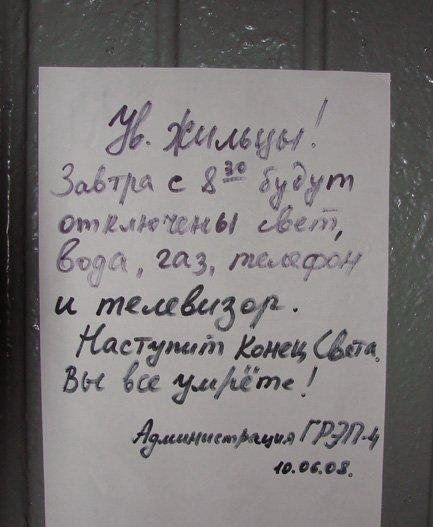 Ув. жильцы!
Завтра с 8 30 будут
отключены свет,
вода, газ, телефон
и телевизор.
Наступит Конец Света.
Вы все умрёте!
Администрация ГРЭП-4
10.06.08.